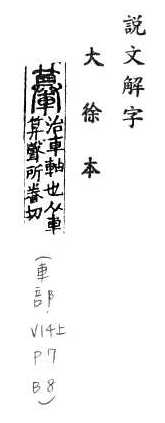 說文解字
大徐本
治車軸也从車
算聲所眷切
(車部
V14上
P7
B8)